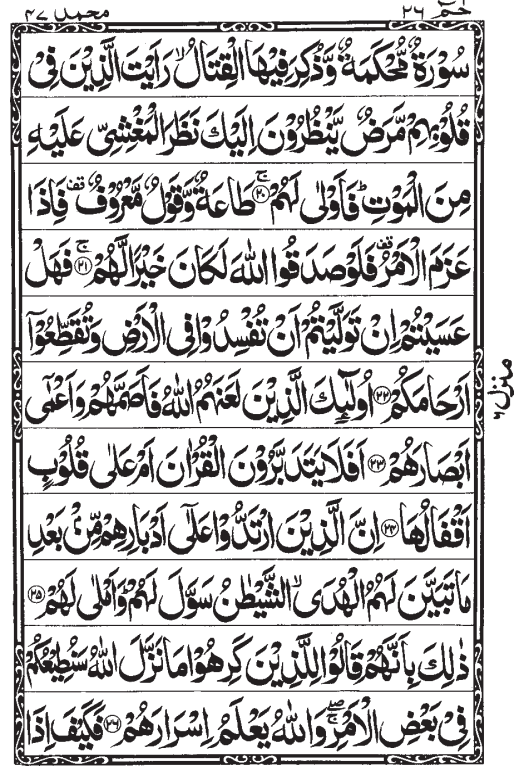 حٰمٓ ۲۶
محمد ۴۷
سُوْرَةٌ مُّحْكَمَةٌ وَّذُكِرَ فِيْهَا الْقِتَالُ ۙ رَاَيْتَ الَّذِيْنَ فِيْ
قُلُوْبِهِمْ مَّرَضٌ يَّنْظُرُوْنَ اِلَيْكَ نَظَرَ الْمَغْشِيِّ عَلَيْهِ
مِنَ الْمَوْتِ ؕ فَاَوْلٰى لَهُمْ ۚ﴿۲۰﴾ طَاعَةٌ وَّقَوْلٌ مَّعْرُوْفٌ ۟ فَاِذَا
عَزَمَ الْاَمْرُ ۟ فَلَوْ صَدَقُوا اللّٰهَ لَكَانَ خَيْرًا لَّهُمْ ۚ﴿۲۱﴾ فَهَلْ
عَسَيْتُمْ اِنْ تَوَلَّيْتُمْ اَنْ تُفْسِدُوْا فِي الْاَرْضِ وَتُقَطِّعُوْۤا
اَرْحَامَكُمْ ﴿۲۲﴾ اُولٰٓئِكَ الَّذِيْنَ لَعَنَهُمُ اللّٰهُ فَاَصَمَّهُمْ وَاَعْمٰۤى
اَبْصَارَهُمْ ﴿۲۳﴾ اَفَلَا يَتَدَبَّرُوْنَ الْقُرْاٰنَ اَمْ عَلٰى قُلُوْبٍ
اَقْفَالُهَا ﴿۲۴﴾ اِنَّ الَّذِيْنَ ارْتَدُّوْا عَلٰۤى اَدْبَارِهِمْ مِّنْۢ بَعْدِ
مَا تَبَيَّنَ لَهُمُ الْهُدَى ۙ الشَّيْطٰنُ سَوَّلَ لَهُمْ ؕ وَاَمْلٰى لَهُمْ ﴿۲۵﴾
ذٰلِكَ بِاَنَّهُمْ قَالُوْا لِلَّذِيْنَ كَرِهُوْا مَا نَزَّلَ اللّٰهُ سَنُطِيْعُكُمْ
فِيْ بَعْضِ الْاَمْرِ ۖۚ وَاللّٰهُ يَعْلَمُ اِسْرَارَهُمْ ﴿۲۶﴾ فَكَيْفَ اِذَا
منزل ۶